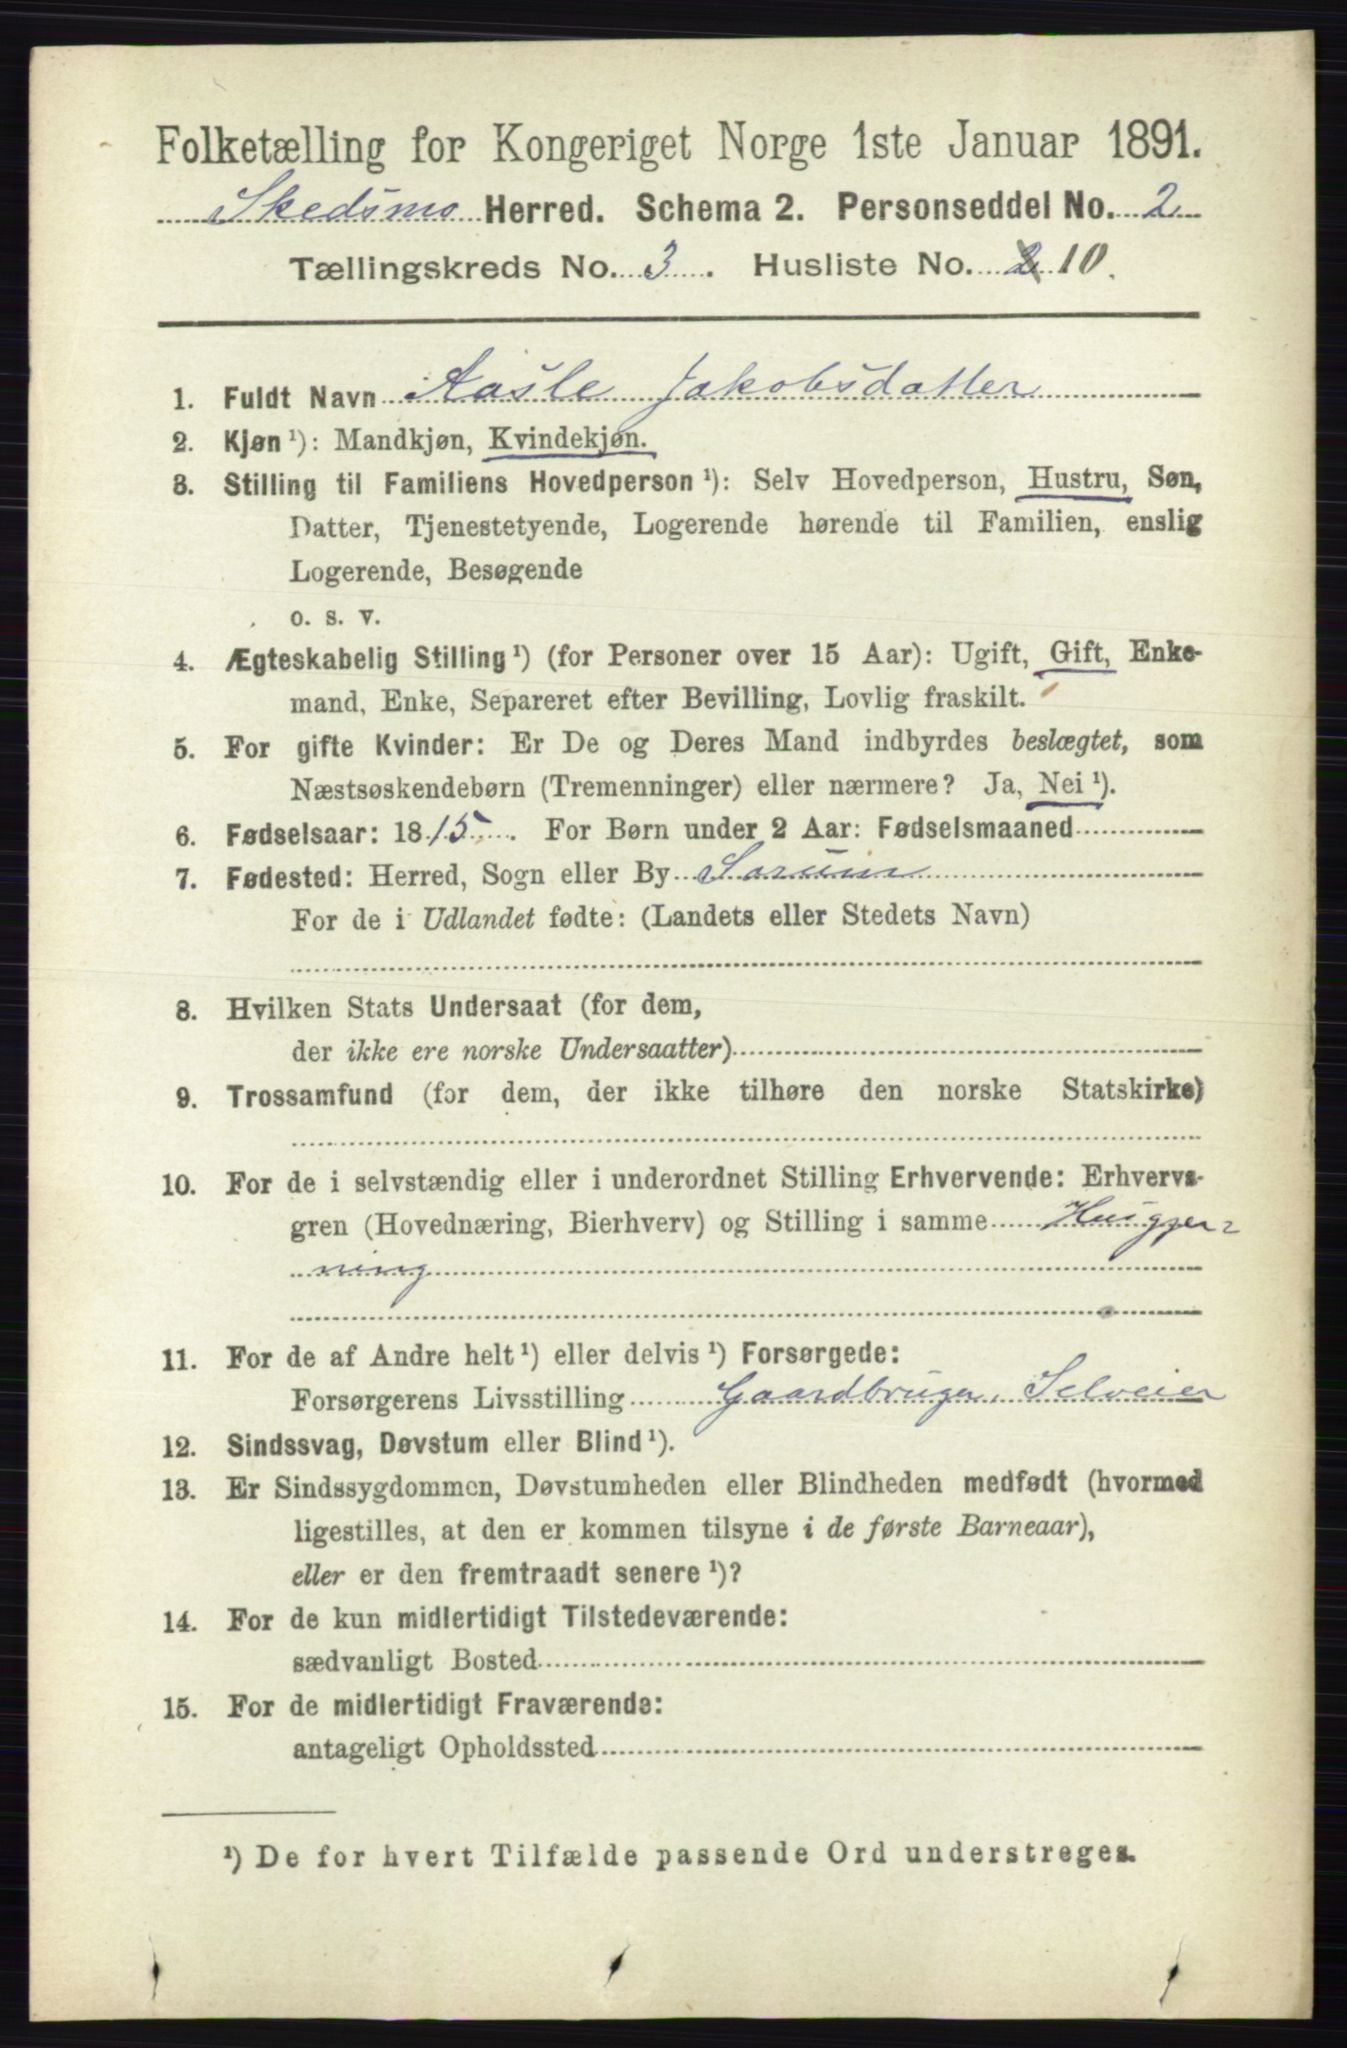 Folketælling for Kongeriget Norge 1ste Januar 1891.
Skedsmo Herred. Schema 2. Personseddel No. 2
Tællingskreds No. 3. Husliste No. 2 10.
1. Fuldt Navn Aasle Jakobsdatter
2. Kjøn ¹): Mandkjøn, Kvindekjøn.
3. Stilling til Familiens Hovedperson ¹): Selv Hovedperson, Hustru, Søn,
Datter, Tjenestetyende, Logerende hørende til Familien, enslig
Logerende, Besøgende
o. s. v.
4. Ægteskabelig Stilling ¹) (for Personer over 15 Aar): Ugift, Gift, Enke-
mand, Enke, Separeret efter Bevilling, Lovlig fraskilt.
5. For gifte Kvinder: Er De og Deres Mand indbyrdes beslægtet, som
Næstsøskendebørn (Tremenninger) eller nærmere? Ja, Nei ¹).
6. Fødselsaar: 1815. For Børn under 2 Aar: Fødselsmaaned
7. Fødested: Herred, Sogn eller By Sørum
For de i Udlandet fødte: (Landets eller Stedets Navn)
8. Hvilken Stats Undersaat (for dem,
der ikke ere norske Undersaatter)
9. Trossamfund (for dem, der ikke tilhøre den norske Statskirke)
10. For de i selvstændig eller i underordnet Stilling Erhvervende: Erhvervs-
gren (Hovednæring, Bierhverv) og Stilling i samme Husgjer-
ning
11. For de af Andre helt ¹) eller delvis ¹) Forsørgede:
Forsørgerens Livsstilling Gaardbruger, Selveier
12. Sindssvag, Døvstum eller Blind ¹).
13. Er Sindssygdommen, Døvstumheden eller Blindheden medfødt (hvormed
ligestilles, at den er kommen tilsyne i de første Barneaar),
eller er den fremtraadt senere ¹)?
14. For de kun midlertidigt Tilstedeværende:
sædvanligt Bosted
15. For de midlertidigt Fraværende:
antageligt Opholdssted
¹) De for hvert Tilfælde passende Ord understreges.